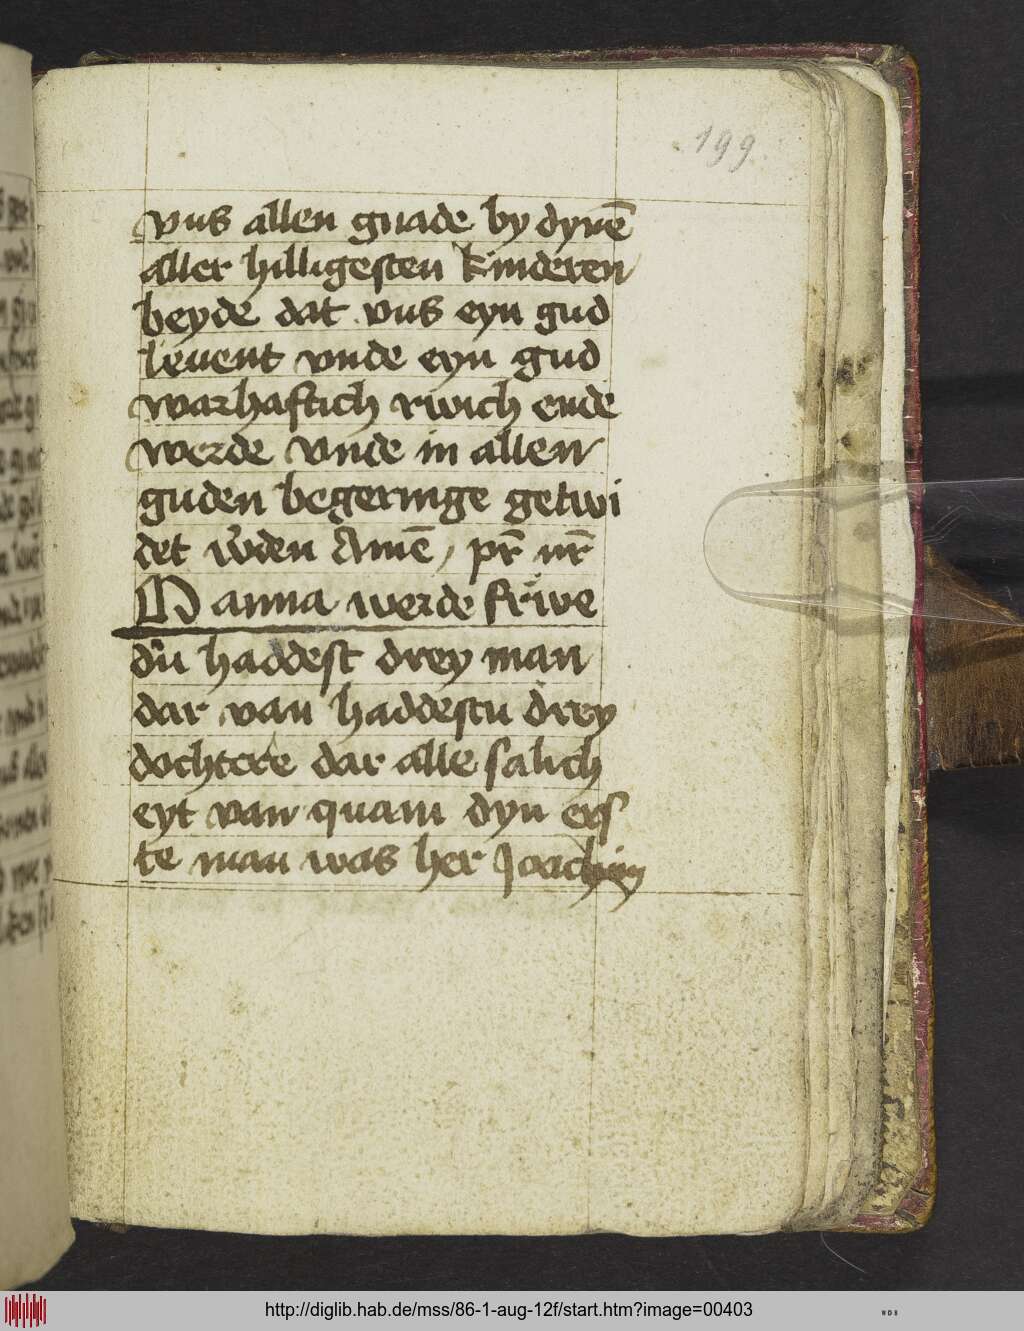 199
vns allen gnade by dynē
aller hilligesten kinderen
beyde dat vns eyn gud
leuent vnde eyn gud
warhaftich rwich ende
werde vnde in allen
guden begeringe getwi
det w̉den Amē / pr̄ nr̄
anna werde frͦwe
du haddest drey man
dar van haddestu drey
dochtere dar alle salich
eyt van quam dyn ers
te man was her Joachim
http://diglib.hab.de/mss/86-1-aug-12f/start.htm?image=00403